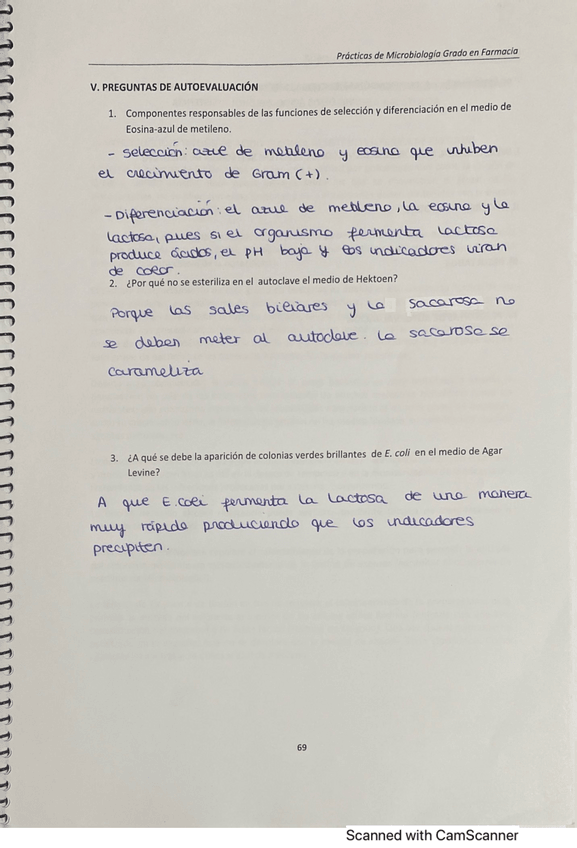 Prácticas de Microbiología Grado en Farmacia
V. PREGUNTAS DE AUTOEVALUACIÓN
1. Componentes responsables de las funciones de selección y diferenciación en el medio de
Eosina-azul de metileno.
- selección: azul de metileno y eosina que inhiben
el crecimiento de Gram (+).
- Diferenciación: el azul de metileno, la eosina y la
lactosa, pues si el organismo fermenta lactosa
produce ácidos, el PH baja y los indicadores viran
de color.
2. ¿Por qué no se esteriliza en el autoclave el medio de Hektoen?
Porque las sales biliares y la sacarosa no
se deben meter al autoclave. La sacarosa se
carameliza
3. ¿A qué se debe la aparición de colonias verdes brillantes de E. coli en el medio de Agar
Levine?
A que E.coli fermenta la lactosa de una manera
muy rápida produciendo que los indicadores
precipiten.
69
Scanned with CamScanner